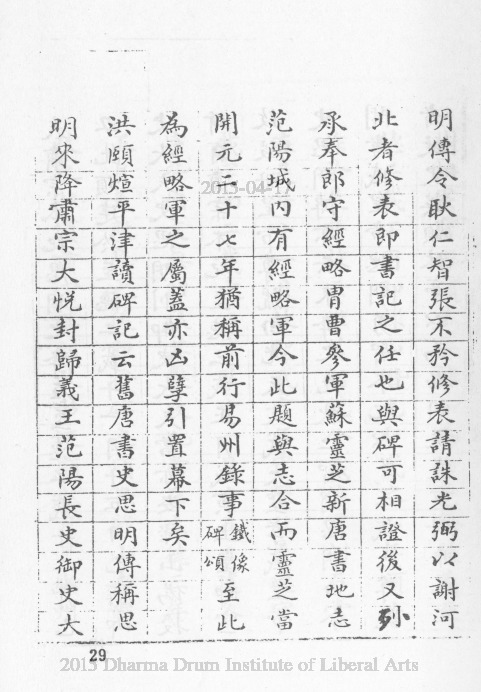 明傳令耿仁智張不矜修表請誅光弼以謝河
北者修表即書記之任也與碑可相證後又列
承奉郎守經略胄曹參軍蘇靈芝新唐書地志
范陽城內有經略軍今此題與志合而靈芝當
開元二十七年猶稱前行易州錄事鐵像碑頌至此
為經略軍之屬蓋亦凶孽引置幕下矣
洪頤煊平津讀碑記云舊唐書史思明傳稱思
明來降肅宗大悅封歸義王范陽長史御史大
2015-04-17
29
2015 Dharma Drum Institute of Liberal Arts